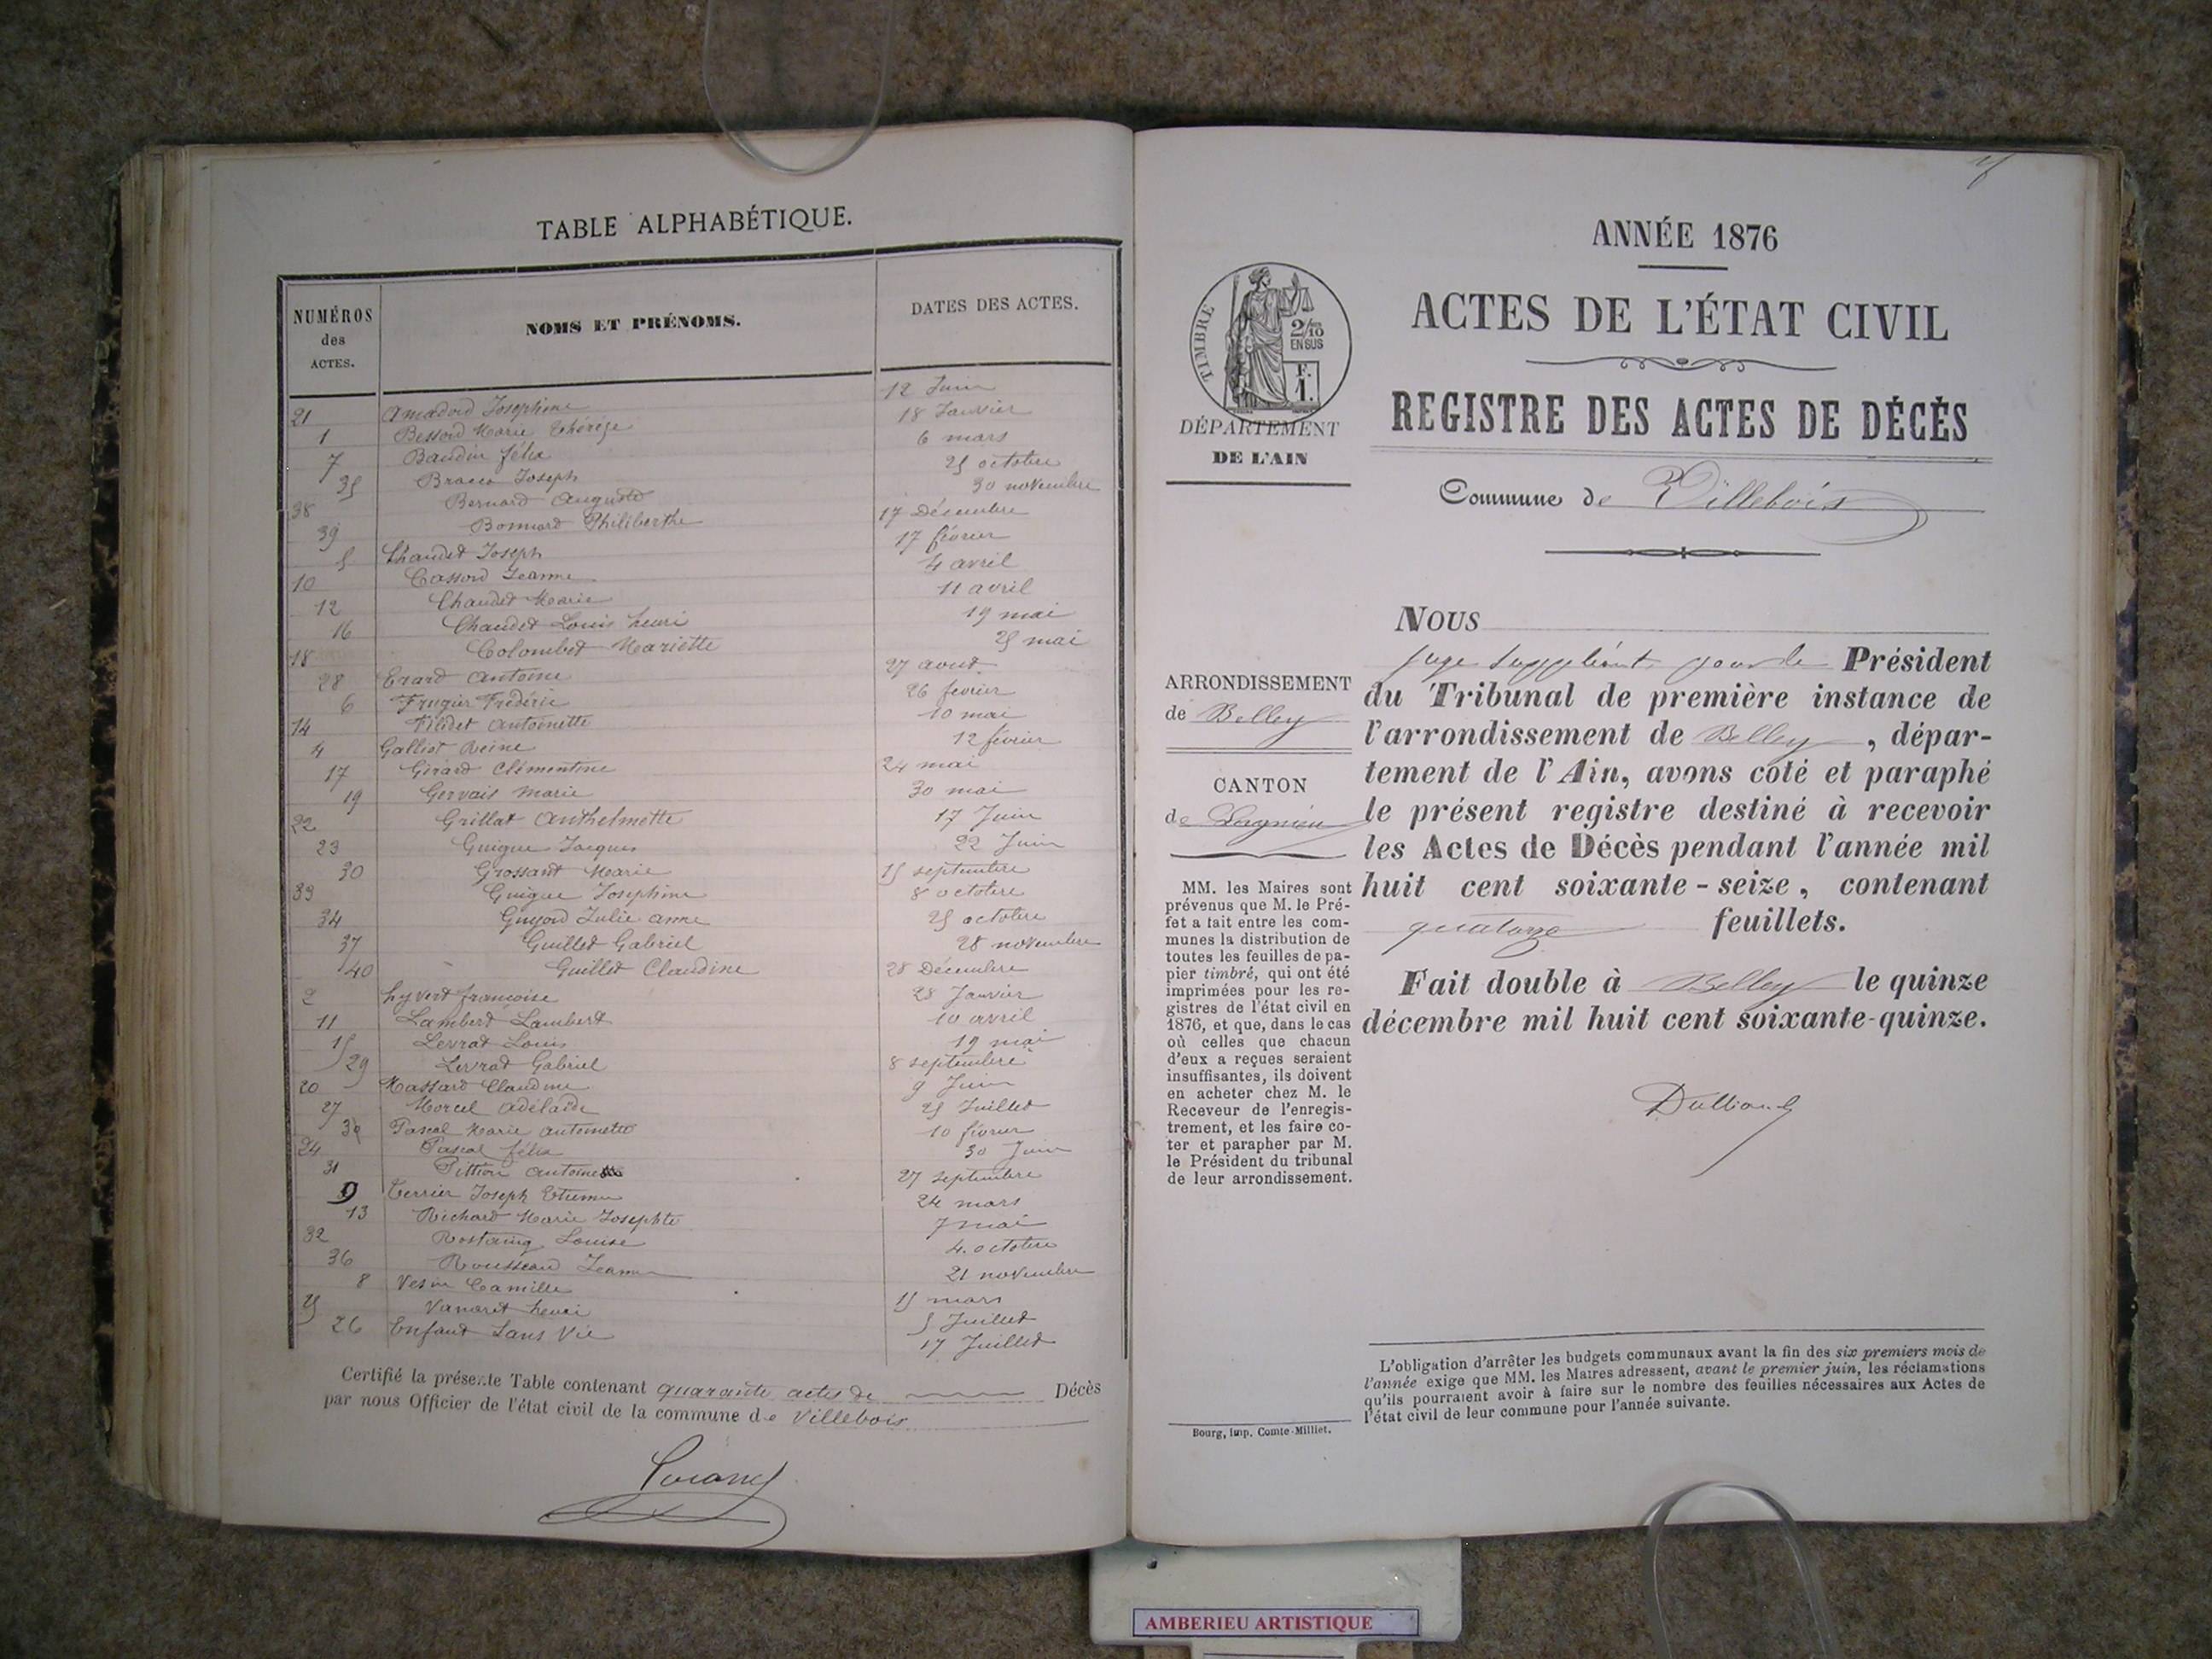 TABLE ALPHABÉTIQUE.
NUMÉROS des ACTES.
NOMS ET PRÉNOMS.
DATES DES ACTES.
21 Amadord Josephine 12 Juin
1 Bessond Marie Thérèse 18 Janvier
7 Baudin félix 6 mars
35 Bracco Joseph 25 octobre
38 Bernard Auguste 30 novembre
39 Bonnard Philiberthe 17 Décembre
5 Chaudet Joseph 17 février
10 Cassond Jeanne 4 avril
12 Chaudet Marie 11 avril
16 Chaudet Louis henri 19 mai
18 Colombet Mariette 25 mai
28 Erard Antoine 27 aout
6 Frugier Frédéric 26 fevrier
14 Filidet Antoinette 10 mai
4 Galliot Reine 12 février
17 Girard Clémentine 24 mai
19 Gervais Marie 30 mai
22 Grillat Anthelmette 17 Juin
23 Guigue Jacques 22 Juin
30 Grossant Marie 15 septembre
33 Guigue Josephine 8 octobre
34 Guyond Julie anne 25 octobre
37 Guillet Gabriel 28 novembre
40 Guillet Claudine 28 Décembre
2 hyvert françoise 28 Janvier
11 Lambert Lambert 10 avril
15 Levrat Louis 19 mai
29 Levrat Gabriel 8 septembre
20 Massard Claudine 9 Juin
27 Morcel Adélaïde 25 Juillet
3 Pascal Marie Antoinette 10 février
24 Pascal félix 30 Juin
31 Pittion Antoine 27 septembre
9 Terrier Joseph Etienne 24 mars
13 Richard Marie Josephte 7 mai
32 Rostaing Louise 4 octobre
36 Rousseau Jeanne 21 novembre
8 Vesin Camille 15 mars
25 Vanaret henri 5 Juillet
26 Enfant Sans Vie 17 Juillet
Certifié la présente Table contenant quarante actes de Décès
par nous Officier de l'état civil de la commune de Villebois
ANNÉE 1876
ACTES DE L'ÉTAT CIVIL
REGISTRE DES ACTES DE DÉCÈS
Commune de Villebois
TIMBRE
2/10
EN SUS
F.
1.
DÉPARTEMENT
DE L'AIN
ARRONDISSEMENT
de Belley
CANTON
de Lagnieu
MM. les Maires sont
prévenus que M. le Pré-
fet a fait entre les com-
munes la distribution de
toutes les feuilles de pa-
pier timbré, qui ont été
imprimées pour les re-
gistres de l'état civil en
1876, et que, dans le cas
où celles que chacun
d'eux a reçues seraient
insuffisantes, ils doivent
en acheter chez M. le
Receveur de l'enregis-
trement, et les faire co-
ter et parapher par M.
le Président du tribunal
de leur arrondissement.
Bourg, Imp. Comte-Milliet.
NOUS
juge suppléant pour le Président
du Tribunal de première instance de
l'arrondissement de Belley, dépar-
tement de l'Ain, avons coté et paraphé
le présent registre destiné à recevoir
les Actes de Décès pendant l'année mil
huit cent soixante-seize, contenant
quatorze feuillets.
Fait double à Belley le quinze
décembre mil huit cent soixante-quinze.
L'obligation d'arrêter les budgets communaux avant la fin des six premiers mois de
l'année exige que MM. les Maires adressent, avant le premier juin, les réclamations
qu'ils pourraient avoir à faire sur le nombre des feuilles nécessaires aux Actes de
l'état civil de leur commune pour l'année suivante.
AMBERIEU ARTISTIQUE